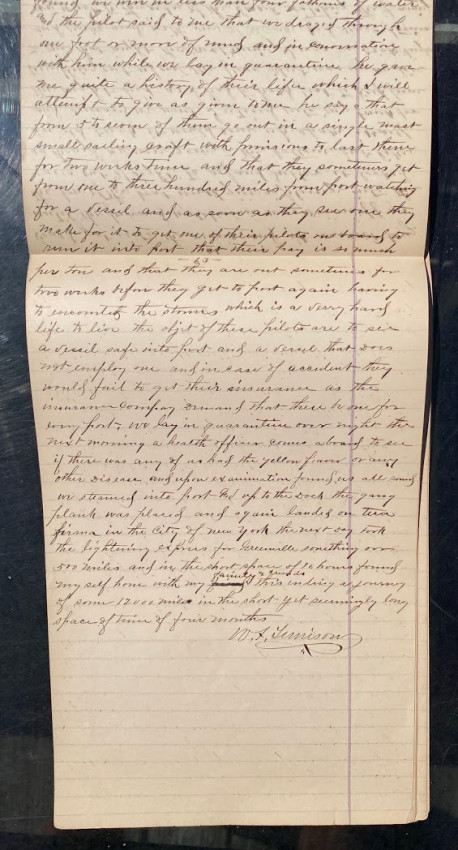 found we were in less than four fathoms of water
and the pilot said to me that we draged through
one foot or more of mud and in conversation
with him while we lay in quarantine he gave
me quite a history of their life which I will
attempt to give as given to me he says that
from 5 to seven of them go out in a single mast
small sailing craft with provisions to last them
for two weeks time and that they sometimes get
from one to three hundred miles from port watching
for a vessel and as soon as they see one they
make for it to get one of their pilots on board to
run it into port that their pay is so much
per ton and that they are out sometimes for
two weeks before they get to port again having
to encounter the storms which is a very hard
life to live the objt of these pilots are to see
a vessil safe into port and a vessel that does
not employ one and in case of accident they
would fail to get their insurance as the
insurance company demand that there be one for
every port. we lay in quarantine over night the
next morning a health officer comes aboard to see
if there was any of us had the yellow fever or any
other disease and upon examination found us all sound
we steamed into port & up to the Dock the gang
plank was placed and again landed on tera
firma in the City of new York the next day took
the lightning express for Greenville something over
500 miles and in the short space of 16 hours found
my self home with my family & friends this ending a journey
of some 12000 miles in the short yet seemingly long
space of time of four months
W. F. Jimison